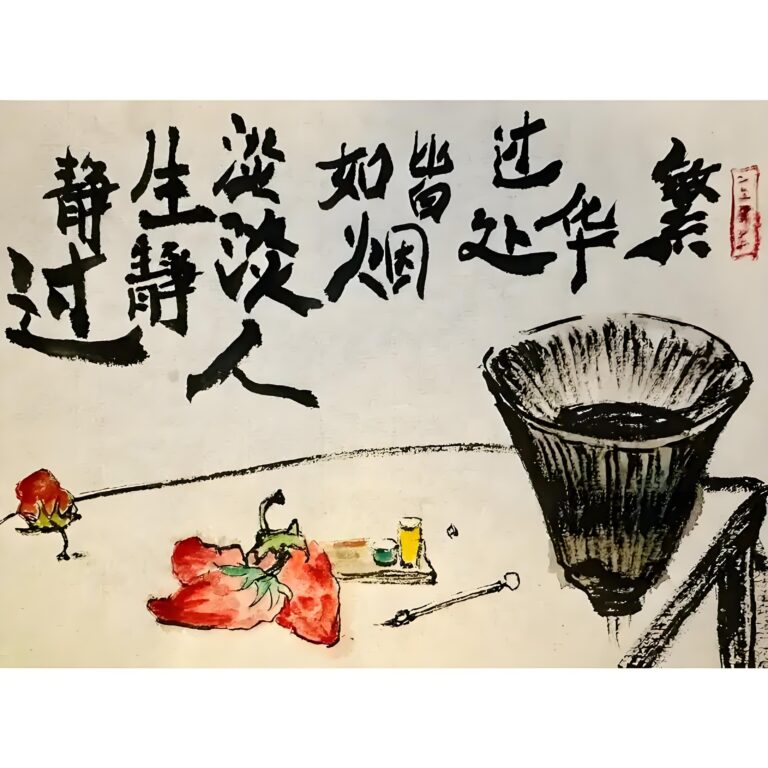 繁
华
过处
皆
如烟
淡淡人
生静
静过